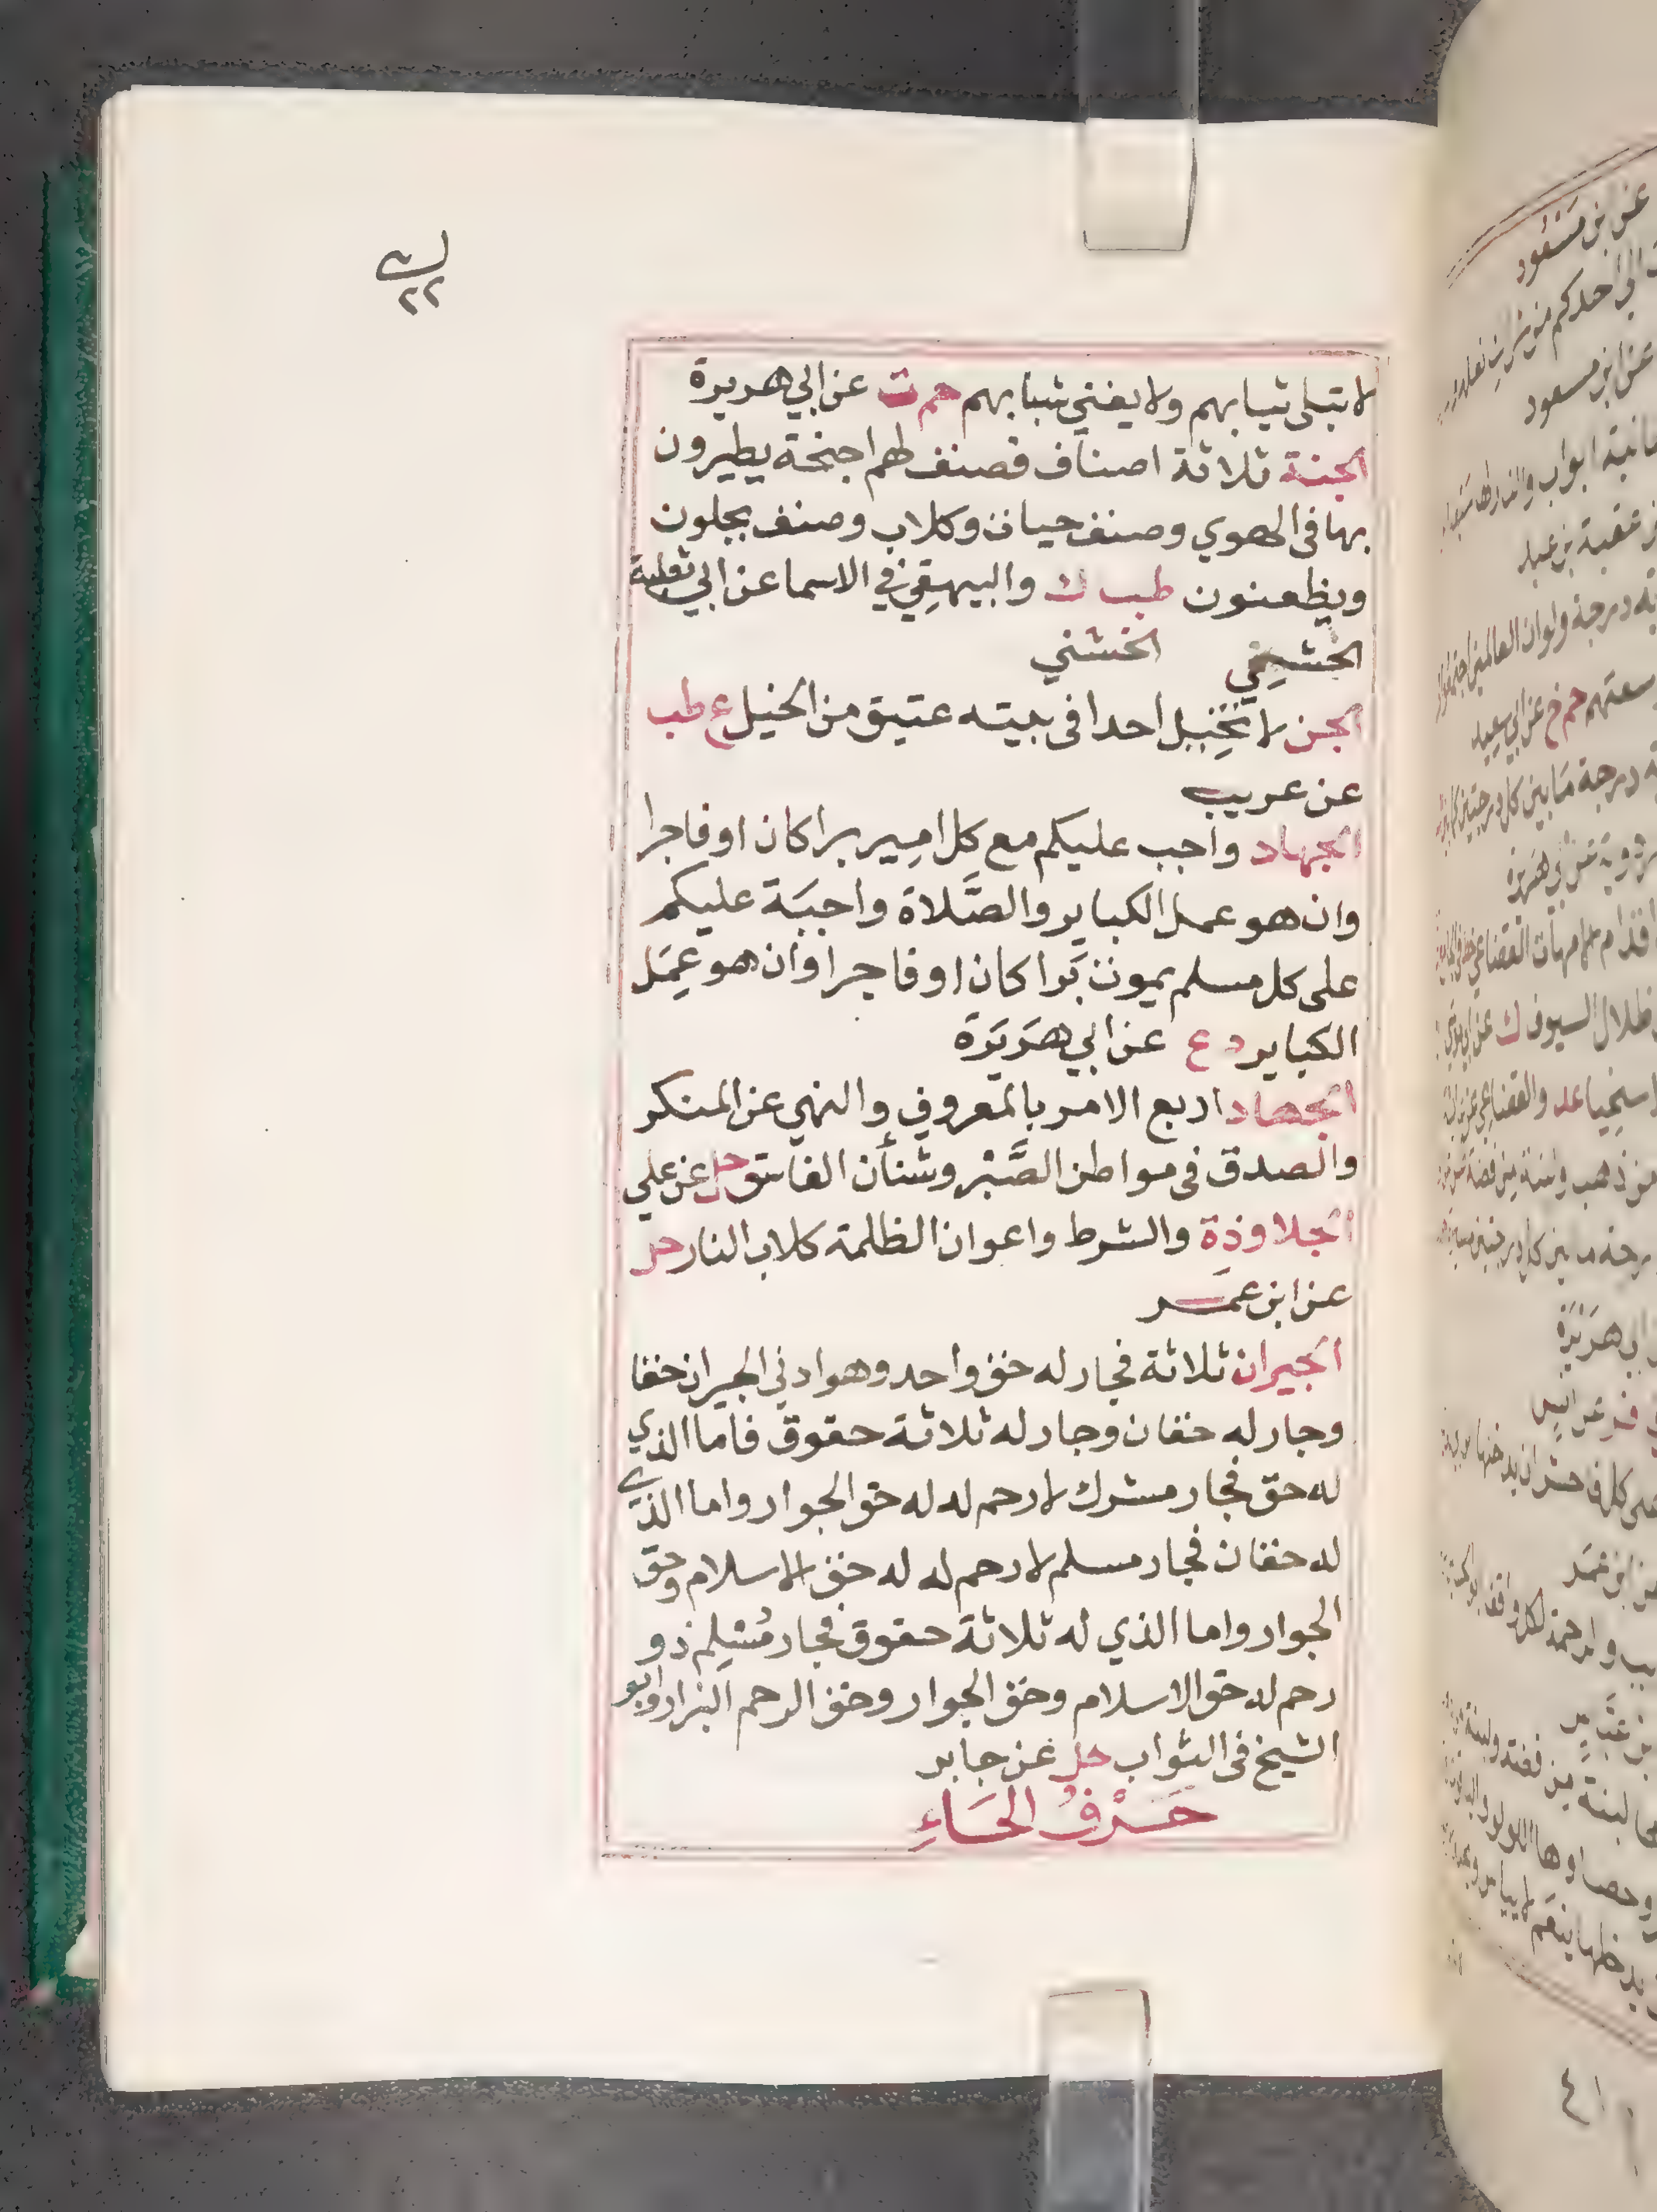 لا تبلى ثيابهم ولا يفنى شبابهم حم ت عن ابي هريرة
الجنة ثلاثة اصناف فصنف لهم اجنحة يطيرون
بها في الهوي وصنف حيات وكلاب وصنف يحلون
ويظعنون طب ك والبيهقي في الاسما عن ابي ثعلبة
الخشني الخشني
الجن لا تخبل احدا في بيته عتيق من الخيل ع طب
عن عريب
الجهاد واجب عليكم مع كل امير برا كان او فاجرا
وان هو عمل الكباير والصَّلاة واجبَة عليكم
على كل مسلم يموت بَرا كان او فاجرا وان هو عمَل
الكباير د ع عن ابي هَرَيَرَة
الجهاد اربع الامر بالمعروف والنهي عن المنكر
والصدق في مواطن الصَّبْر وشنأن الفاسق حل عن علي
الجلاوذة والشرط واعوان الظلمة كلاب النار حل
عن ابن عمَر
الجيران ثلاثة فجار له حق واحد وهو ادني الجيران حقا
وجار له حقان وجار له ثلاثة حقوق فاما الذي
له حق فجار مشرك لا رحم له له حق الجوار واما الذي
له حقان فجار مسلم لا رحم له له حق الاسلام وحق
الجوار واما الذي له ثلاثة حقوق فجار مُسْلِم ذو
رحم له حق الاسلام وحق الجوار وحق الرحم البزار وابو
الشيخ في الثواب حل عن جابر
حَرْفُ الحَاءِ
٢٢
عن ابن مَسْعُود
عن ابن مسعود
حم خ عن ابي سعيد
ظلال السيوف ك عن ابي
ابي هَرَيْرَة
عن ابن عمَر
٤١